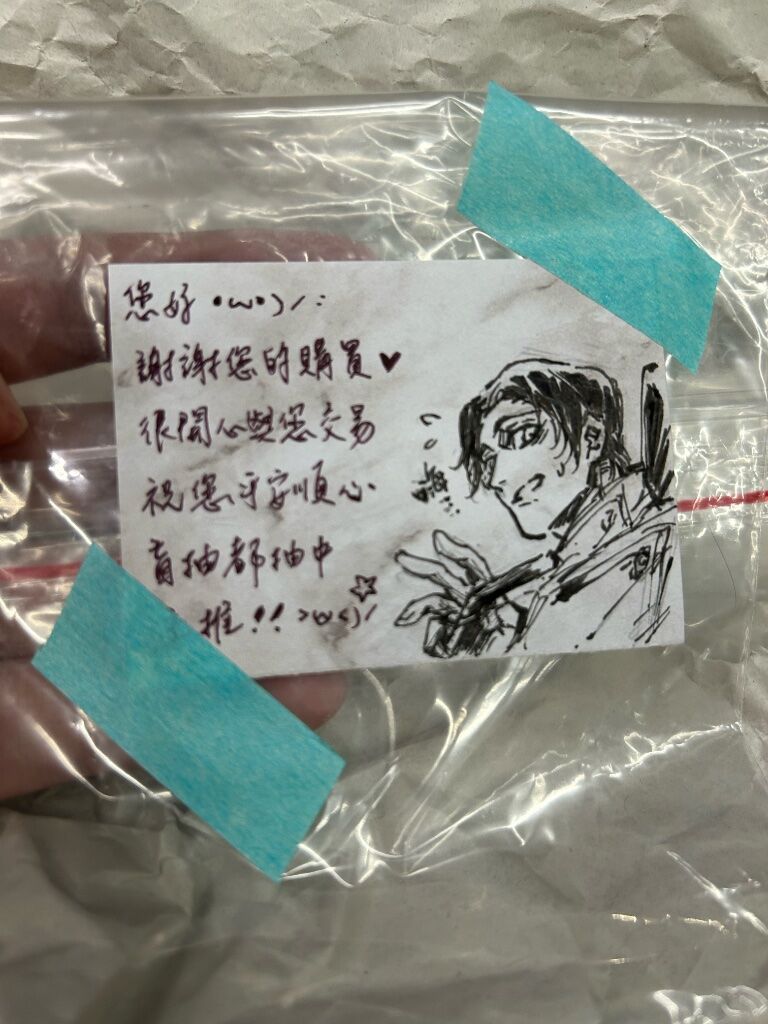 您好 •ω•)ﾉ:
謝謝您的購買♥
很開心與您交易
祝您平安順心
盲抽都抽中
推!! >ω<)ﾉ